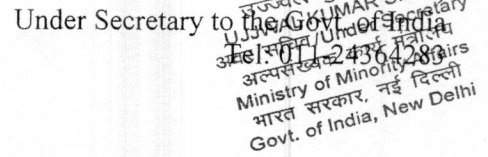 Under Secretary to the Govt. of India
Tel: 011-24364283
UJJWAL KUMAR
अवर सचिव/Under Secretary
अल्पसंख्यक कार्य मंत्रालय
Ministry of Minority Affairs
भारत सरकार, नई दिल्ली
Govt. of India, New Delhi